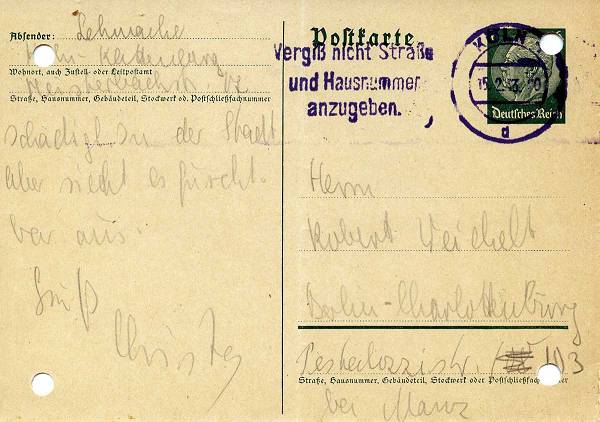 Absender: Lehnacke
Köln-Kattenburg
Wohnort, auch Zustell- oder Leitpostamt
Straße, Hausnummer, Gebäudeteil, Stockwerk od. Postschließfachnummer
schädigt in der Stadt
aber sieht es furcht-
bar aus.
Gruß
Postkarte
Vergiß nicht Straße
und Hausnummer
anzugeben.
KÖLN
d
Deutsches Reich
Herrn
Robert Weichelt
Berlin-Charlottenburg
Pestalozzistr. 103
Straße, Hausnummer, Gebäudeteil, Stockwerk oder Postschließfachnummer
bei Manz